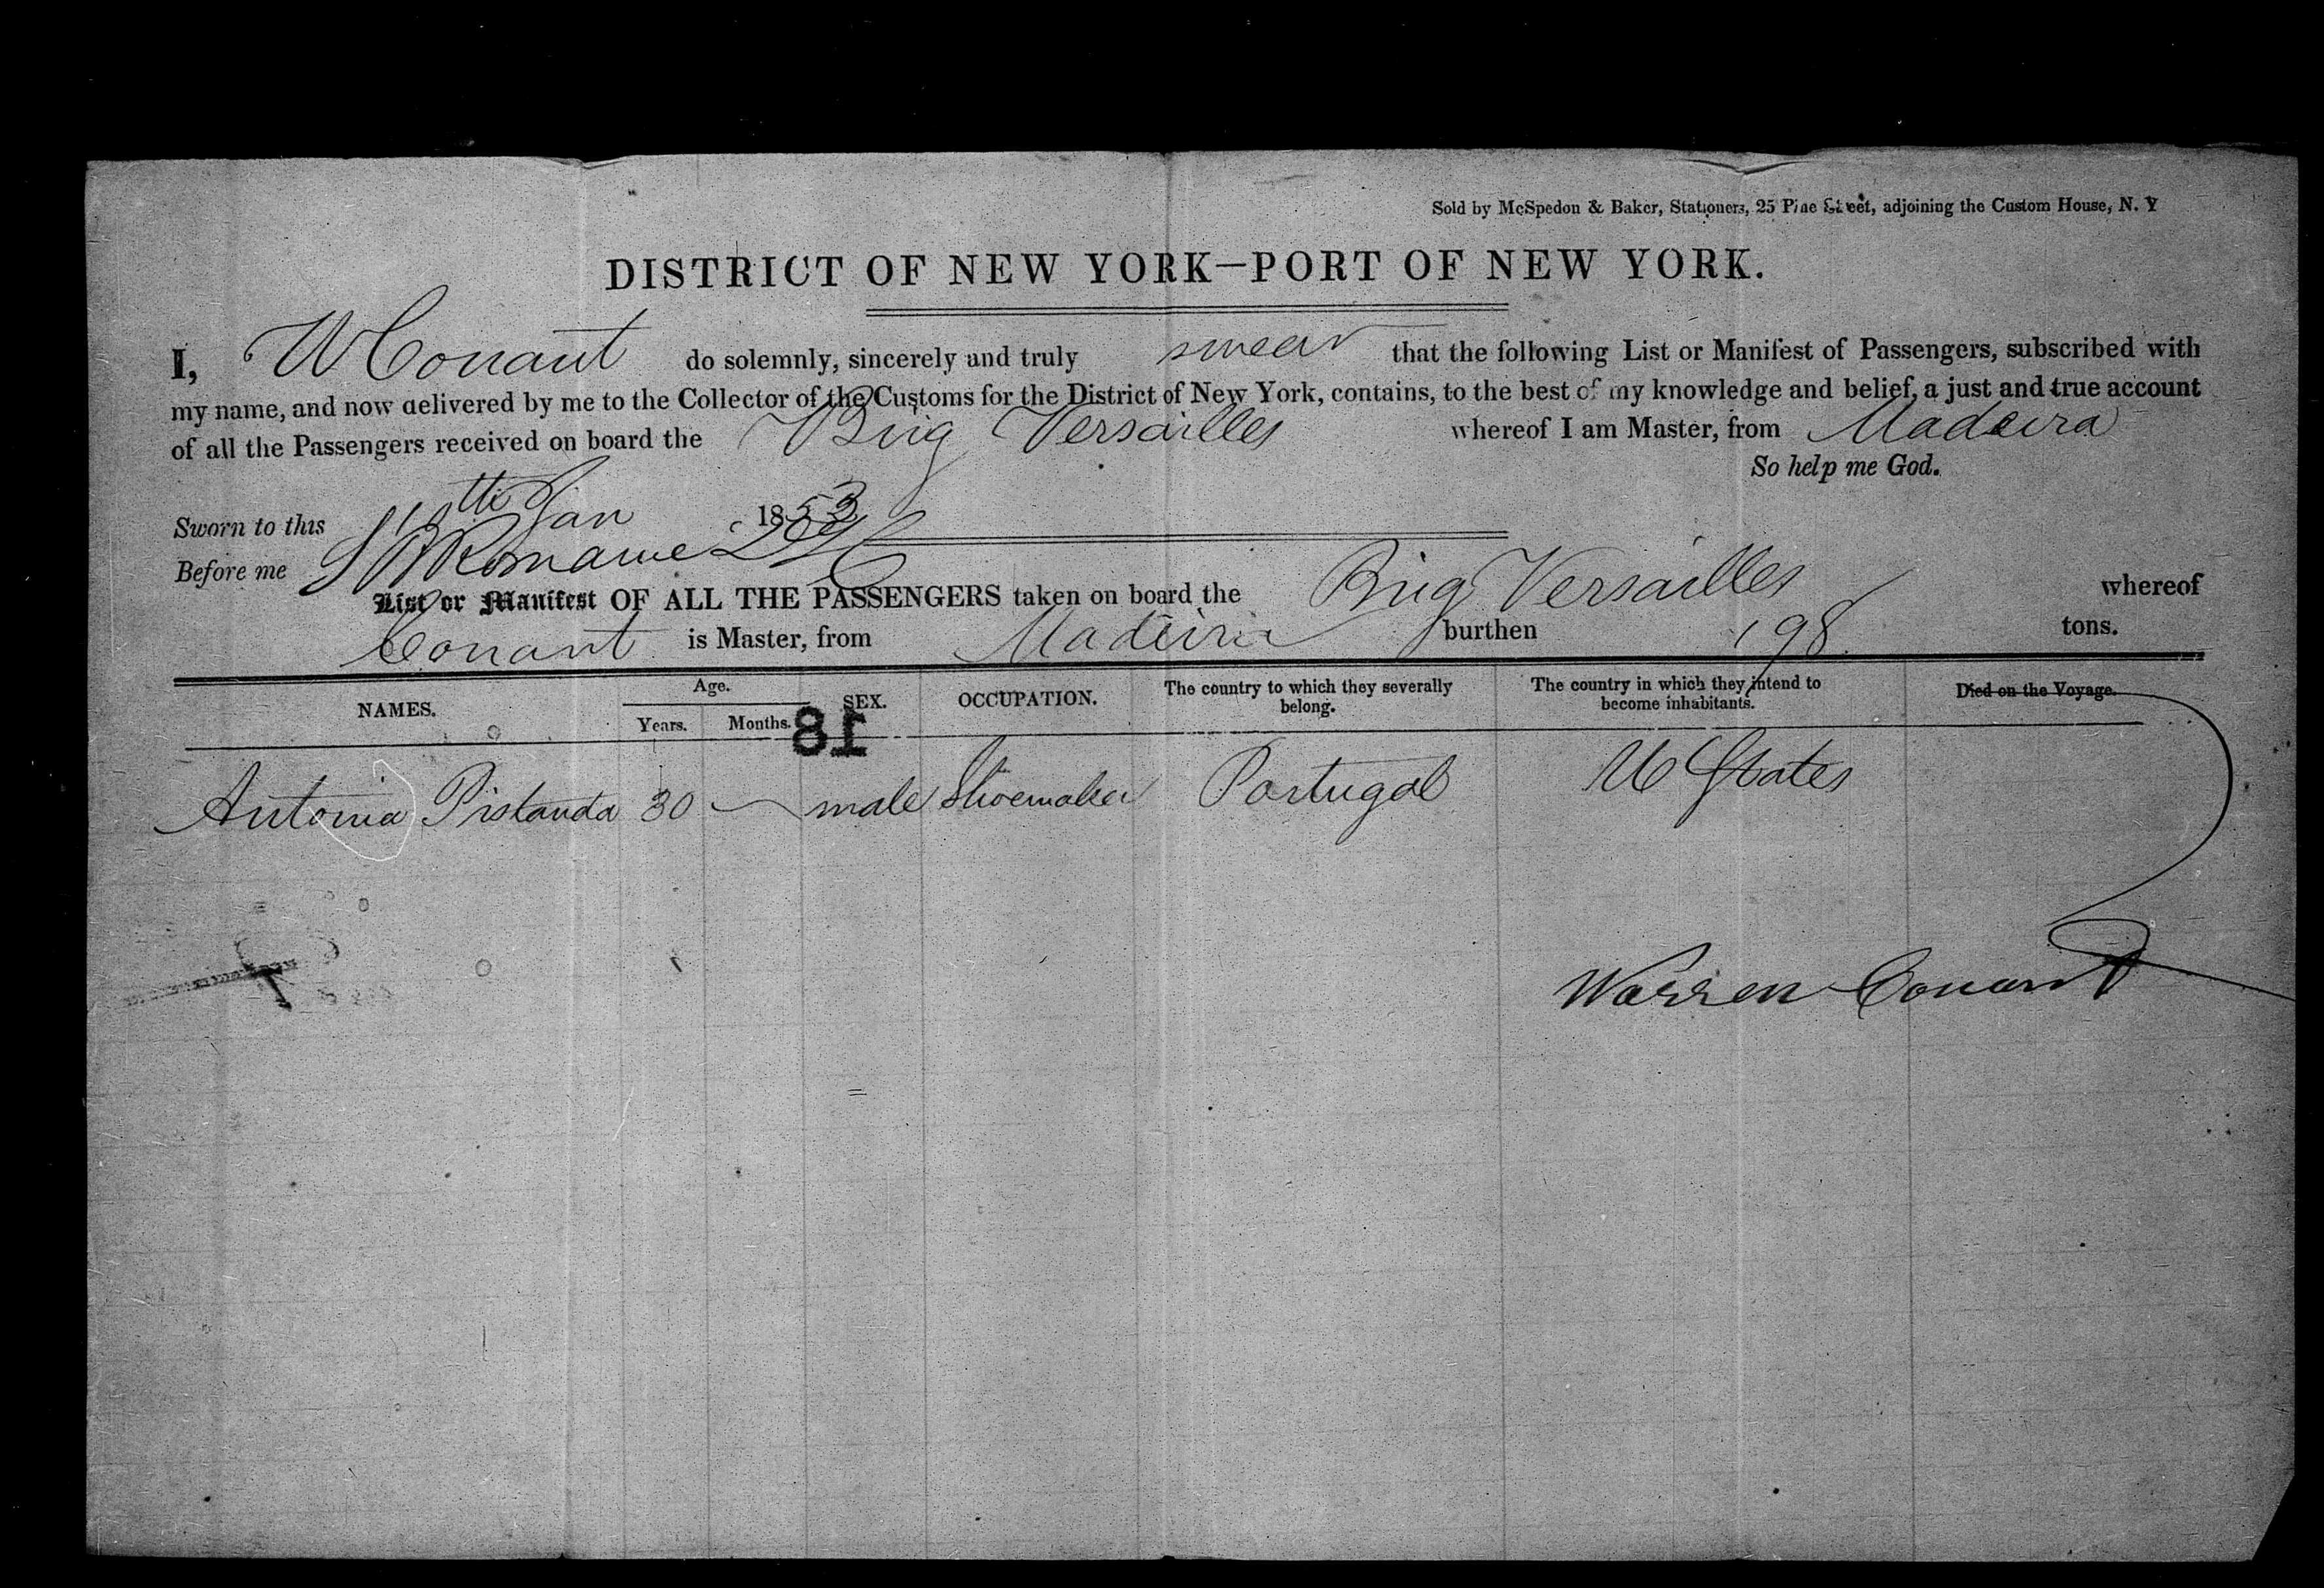 Sold by McSpedon & Baker, Stationers, 25 Pine Street, adjoining the Custom House, N. Y
DISTRICT OF NEW YORK—PORT OF NEW YORK.
I, W Conant do solemnly, sincerely and truly swear that the following List or Manifest of Passengers, subscribed with
my name, and now delivered by me to the Collector of the Customs for the District of New York, contains, to the best of my knowledge and belief, a just and true account
of all the Passengers received on board the Brig Versailles whereof I am Master, from Madeira
So help me God.
Sworn to this 10th Jan 1853
Before me Romaine
List or Manifest OF ALL THE PASSENGERS taken on board the Brig Versailles whereof
Conant is Master, from Madeira burthen 198 tons.
NAMES. Age. Years. Months. SEX. OCCUPATION. The country to which they severally belong. The country in which they intend to become inhabitants. Died on the Voyage.
18
Antonia Pistanda 30 male Shoemaker Portugal U States
Warren Conant